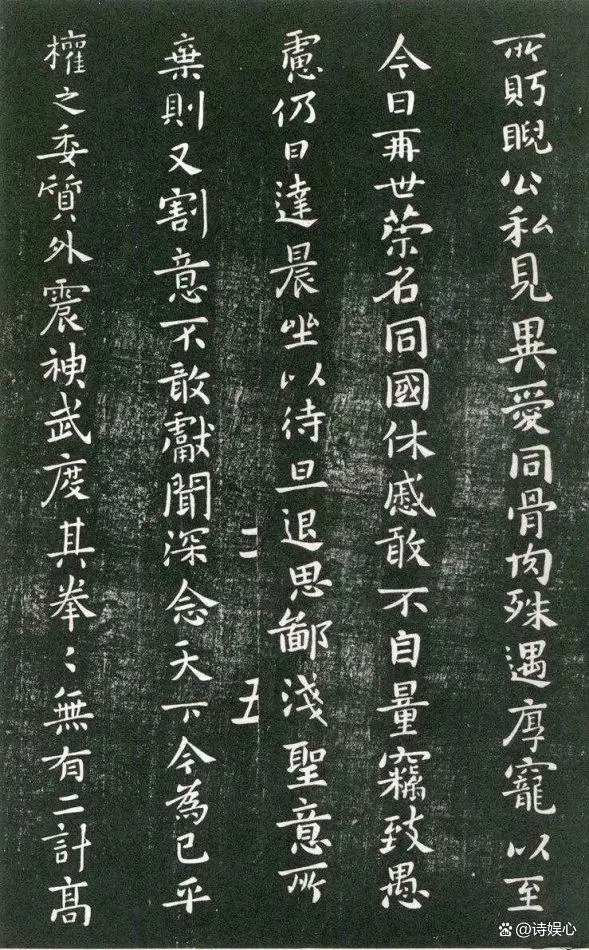 所貺睨公私見異愛同骨肉殊遇厚寵以至
今日再世榮名同國休慼敢不自量竊致愚
慮仍日達晨坐以待旦退思鄙淺聖意所
棄則又割意不敢獻聞深念天下今為已平
權之委質外震神武度其拳〻無有二計高
二
五
@诗娱心